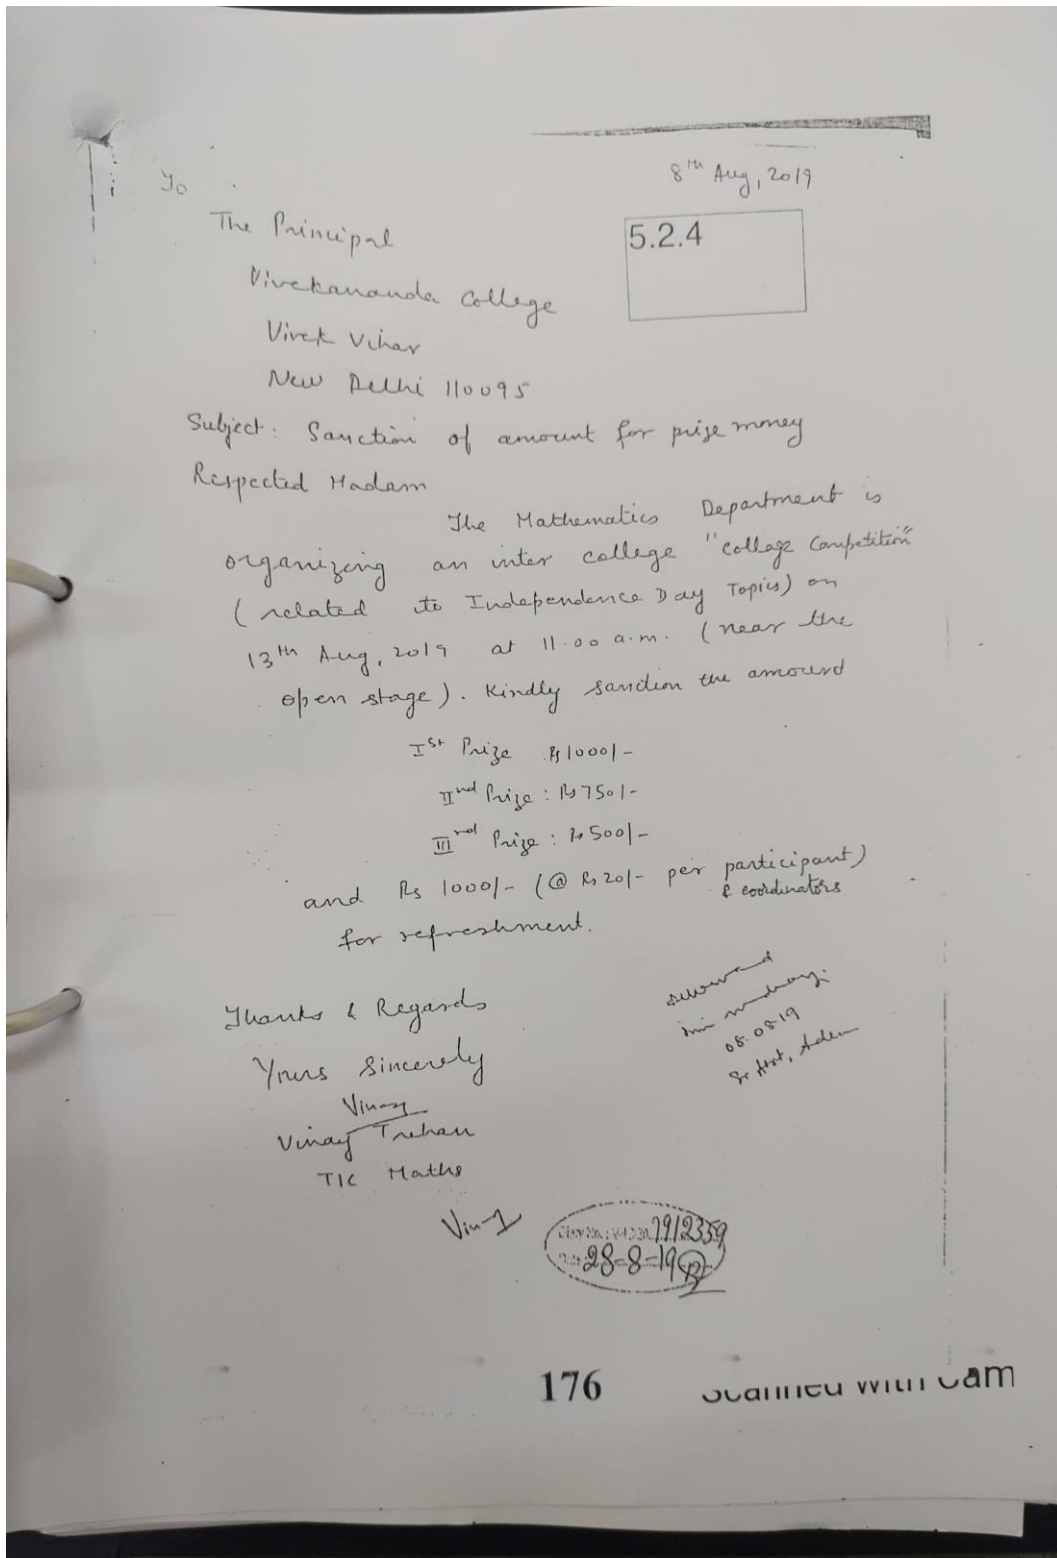 8th Aug, 2019
To
The Principal
5.2.4
Vivekananda College
Vivek Vihar
New Delhi 110095
Subject: Sanction of amount for prize money
Respected Madam
The Mathematics Department is
organizing an inter college "collage Competition"
(related to Independence Day Topics) on
13th Aug, 2019 at 11.00 a.m. (near the
open stage). Kindly sanction the amount
Ist Prize Rs 1000/-
IInd Prize : Rs 750/-
IIIrd Prize : Rs 500/-
and Rs 1000/- (@ Rs 20/- per participant)
& coordinators
for refreshment.
Thanks & Regards
Yours Sincerely
Vinay
Vinay Trehan
TIC Maths
08.08.19
1912359
28-8-19
176
Scanned with Cam